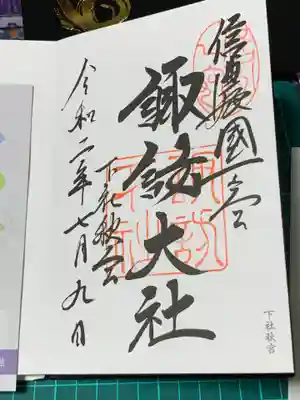 信濃國一之宮
諏訪大社
下社秋宮
令和二年七月九日
下社秋宮